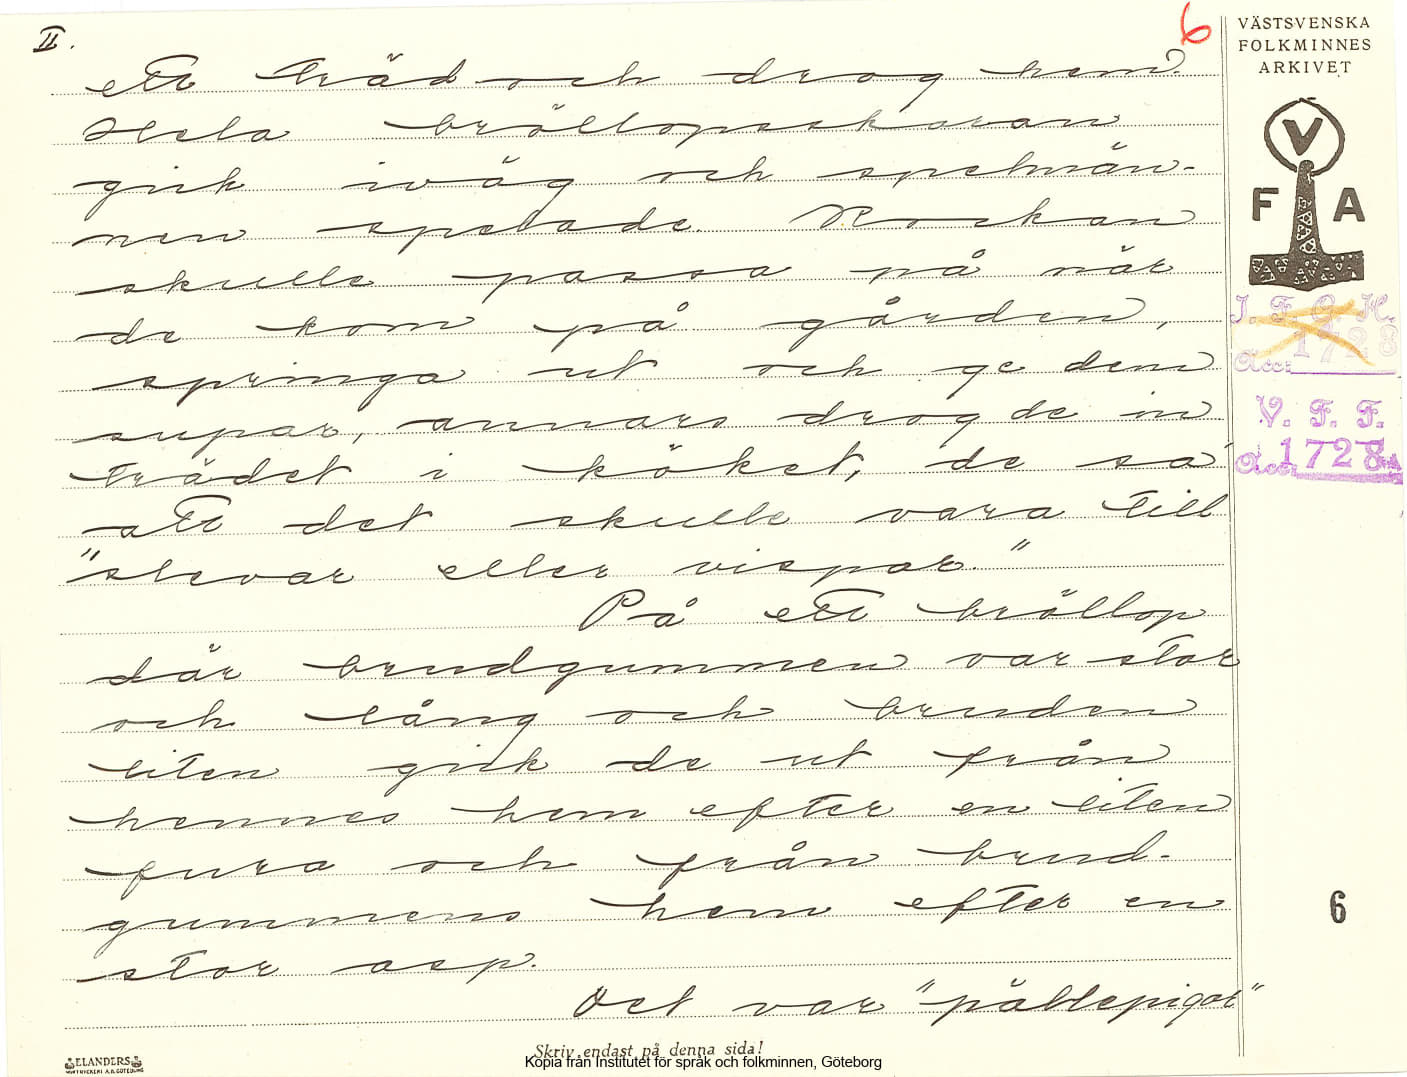 II.
6
VÄSTSVENSKA
FOLKMINNES
ARKIVET
V
F A
I. F. G. H.
1728
Acc:
V. F. F.
Acc: 1728
ett träd och drog hem.
Hela bröllopsskaran
gick iväg och spelmän-
nen spelade. Kockan
skulle passa på när
de kom på gården,
springa ut och ge dem
supar, annars drog de in
trädet i köket, de sa
att det skulle vara till
"slevar eller vispar."
På ett bröllop
där brudgummen var stor
och lång och bruden
liten gick de ut från
hennes hem efter en liten
fura och från brud-
gummens hem efter en
stor asp.
Det var "påltepigor"
6
Skriv endast på denna sida!
ELANDERS
Kopia från Institutet för språk och folkminnen, Göteborg